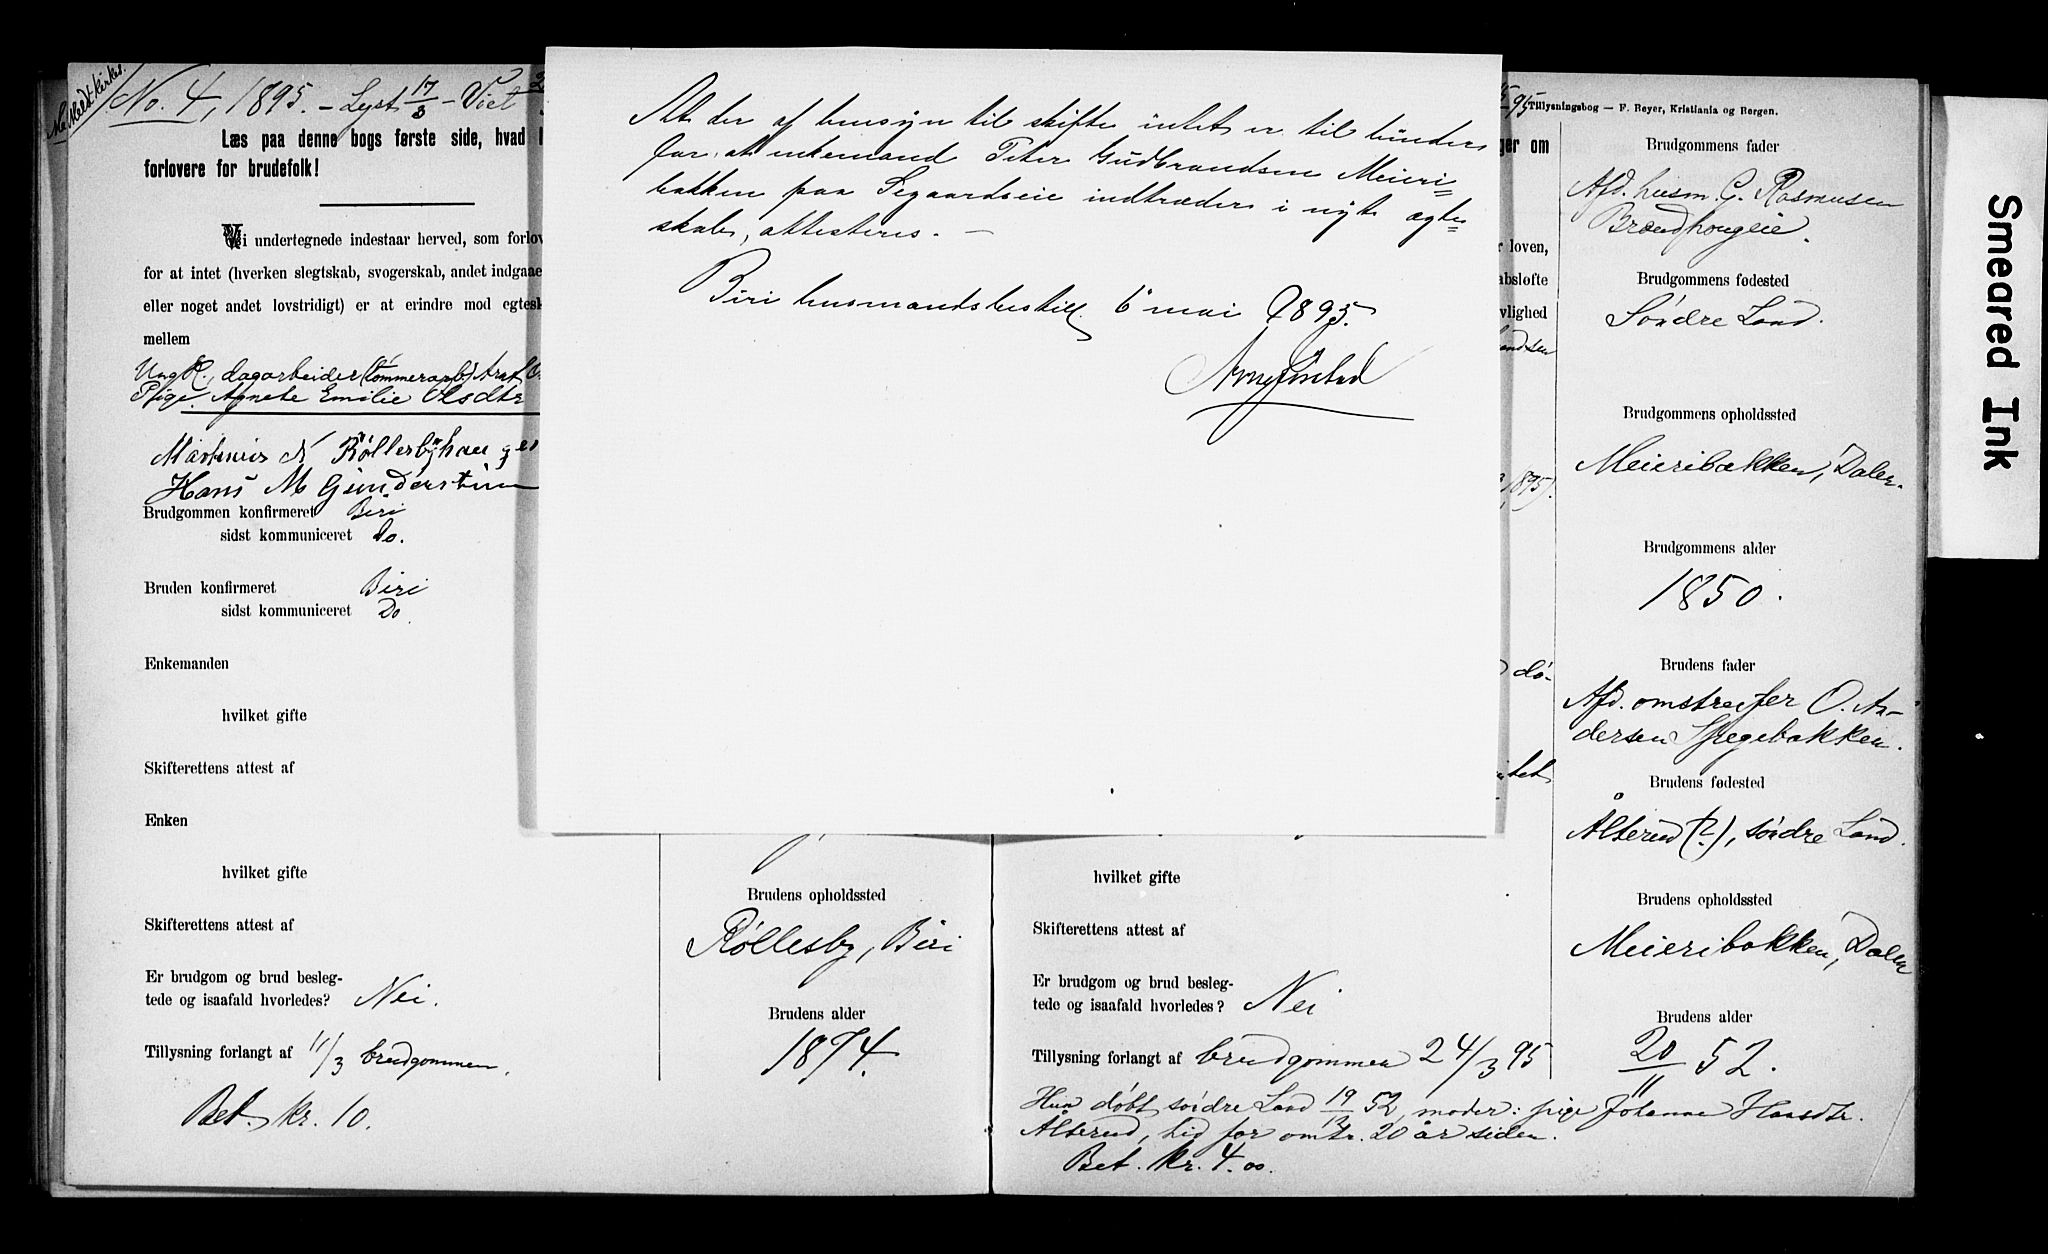 Ne Meldt kirkes.
No. 4, 1895. – Lyst 17/3 – Viet
Læs paa denne bogs første side, hvad l
forlovere for brudefolk!
Vi undertegnede indestaar herved, som forlov
for at intet (hverken slegtskab, svogerskab, andet indgaae
eller noget andet lovstridigt) er at erindre mod egtesk
mellem
Ungk., dagarbeider (tømmerarb.)
Pige Agnete Emilie Olsdtr
Martinus Røllesbyhaugen
Hans M
Brudgommen konfirmeret Biri
sidst kommuniceret Do.
Bruden konfirmeret Biri
sidst kommuniceret Do
Enkemanden
hvilket gifte
Skifterettens attest af
Enken
hvilket gifte
Skifterettens attest af
Er brudgom og brud besleg-
tede og isaafald hvorledes? Nei.
Tillysning forlangt af 11/3 brudgommen.
Bet. kr. 10.
Brudens opholdssted
Røllesby, Biri
Brudens alder
1874.
At der af hensyn til skifte intet er til hinder
for, at enkemand Peter Gudbrandsen Meieri=
bakken paa Segaardseie indtræder i nyt ægte=
skab, attesteres. –
Biri lensmandsbestill. 6 mai 1895.
hvilket gifte
Skifterettens attest af
Er brudgom og brud besleg-
tede og isaafald hvorledes? Nei
Tillysning forlangt af brudgommen 24/3 95
Hun døbt søndre Land 19/12 52, moder: pige Johanne Hansdtr.
Ålserud, hid for omtr. 20 år siden.
Bet. kr. 4.00.
95
Tillysningsbog — F. Beyer, Kristiania og Bergen.
ger om
r loven,
absløfte
vlighed
andsen
1895).
dø-
intet
Brudgommens fader
Afd. husm. G. Rasmusen
Brændhougeie.
Brudgommens fødested
Søndre Land.
Brudgommens opholdssted
Meieribakken, Dalen.
Brudgommens alder
1850.
Brudens fader
Afd. omstreifer O. An-
dersen Spegebakken.
Brudens fødested
Ålserud (?), søndre Land.
Brudens opholdssted
Meieribakken, Dalen
Brudens alder
20/11 52.
Smeared Ink